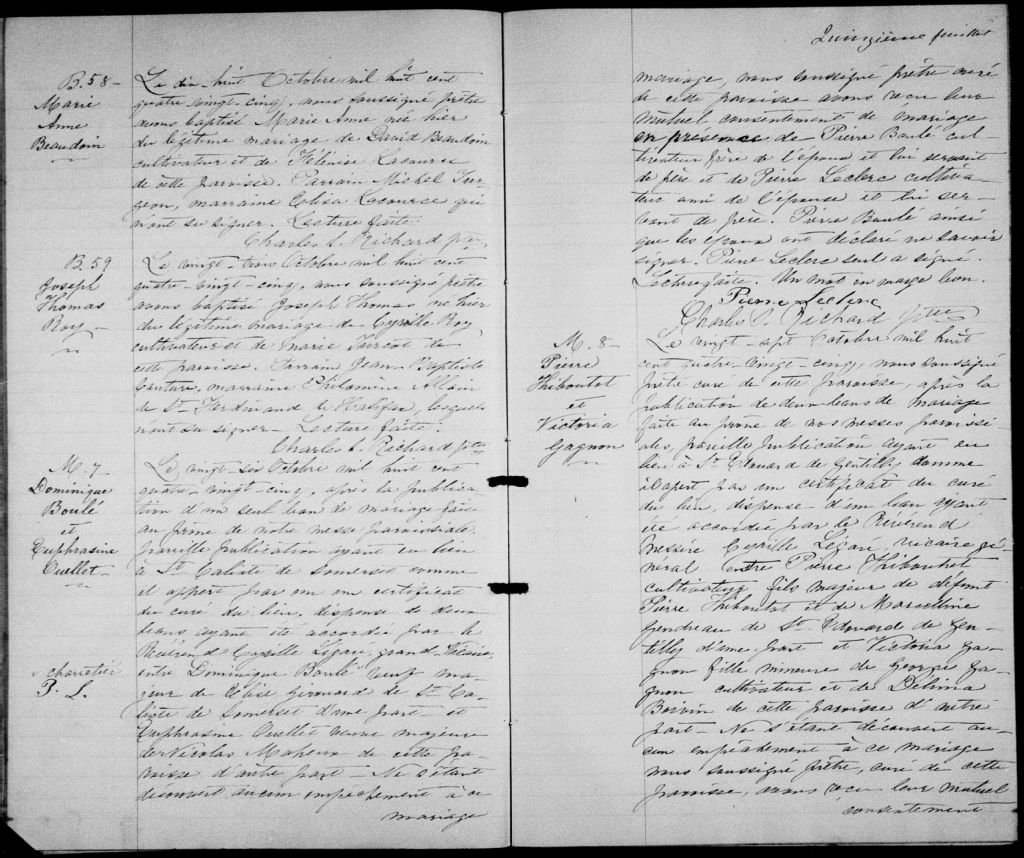 B. 58 -
Marie
Anne
Beaudoin
Le dix huit Octobre mil huit cent
quatre-vingt-cinq, nous soussigné prêtre
avons baptisé Marie Anne née hier
du légitime mariage de David Beaudoin
cultivateur et de Hélénise Lacourse
de cette paroisse. Parrain Michel Tur-
geon, marraine Eolisa Lacourse qui
n'ont su signer. Lecture faite
Charles S. Richard ptre
B 59
Joseph
Thomas
Roy -
Le vingt-trois Octobre mil huit cent
quatre-vingt-cinq, nous soussigné prêtre
avons baptisé Joseph Thomas né hier
du légitime mariage de Cyrille Roy
cultivateur et de Marie Turcot de
cette paroisse. Parrain Jean-Baptiste
Couture, marraine Philomène Allain
de St Ferdinand d'Halifax, lesquels
n'ont su signer - Lecture faite.
Charles S. Richard ptre
M. 7
Dominique
Boulé
et
Euphrasine
Ouellet -
Le vingt-six Octobre mil huit cent
quatre-vingt-cinq, après la publica-
tion d'un seul ban de mariage faite
au prône de notre messe paroissiale
pareille publication ayant eu lieu
à St Calixte de Somerset comme
il appert par un certificat
du curé du lieu, dispense de deux
bans ayant été accordée par le
Révérend Cyrille Légaré, grand-Vicaire,
entre Dominique Boulé veuf ma-
jeur de Elise Girouard de St Ca-
lixte de Somerset d'une part - et
Euphrasine Ouellet veuve majeure
de Nicolas Maheux de cette pa-
roisse d'autre part - Ne s'étant
découvert aucun empêchement à ce
mariage
x charretier
P. L.
Quinzième feuillet
mariage, nous soussigné prêtre curé
de cette paroisse avons reçu leur
mutuel consentement de mariage
en présence de Pierre Boulé cul-
tivateur frère de l'époux et lui servant
de père et de Pierre Leclerc cultiva-
teur ami de l'épouse et lui ser-
vant de père. Pierre Boulé ainsi
que les époux ont déclaré ne savoir
signer. Pierre Leclerc seul a signé.
Lecture faite. Un mot en marge bon.
Pierre Leclerc
Charles S. Richard Ptre
M. 8 -
Pierre
Thiboutot
et
Victoria
Gagnon
Le vingt-sept Octobre mil huit
cent quatre-vingt-cinq, nous soussigné
prêtre curé de cette paroisse, après la
publication de deux bans de mariage
faite au prône de nos messes paroissi-
ales, pareille publication ayant eu
lieu à St Edouard de Gentilly comme
il appert par un certificat du curé
du lieu, dispense d'un ban ayant
été accordée par le Révérend
Messire Cyrille Légaré, vicaire gé-
néral entre Pierre Thiboutot
cultivateur fils majeur de défunt
Pierre Thiboutot et de Marcelline
Gendreau de St Edouard de Gen-
tilly d'une part et Victoria Ga-
gnon fille mineure de George Ga-
gnon cultivateur et de Délima
Boivin de cette paroisse d'autre
part - Ne s'étant découvert au-
cun empêchement à ce mariage
nous soussigné prêtre, curé de cette
paroisse, avons reçu leur mutuel
consentement